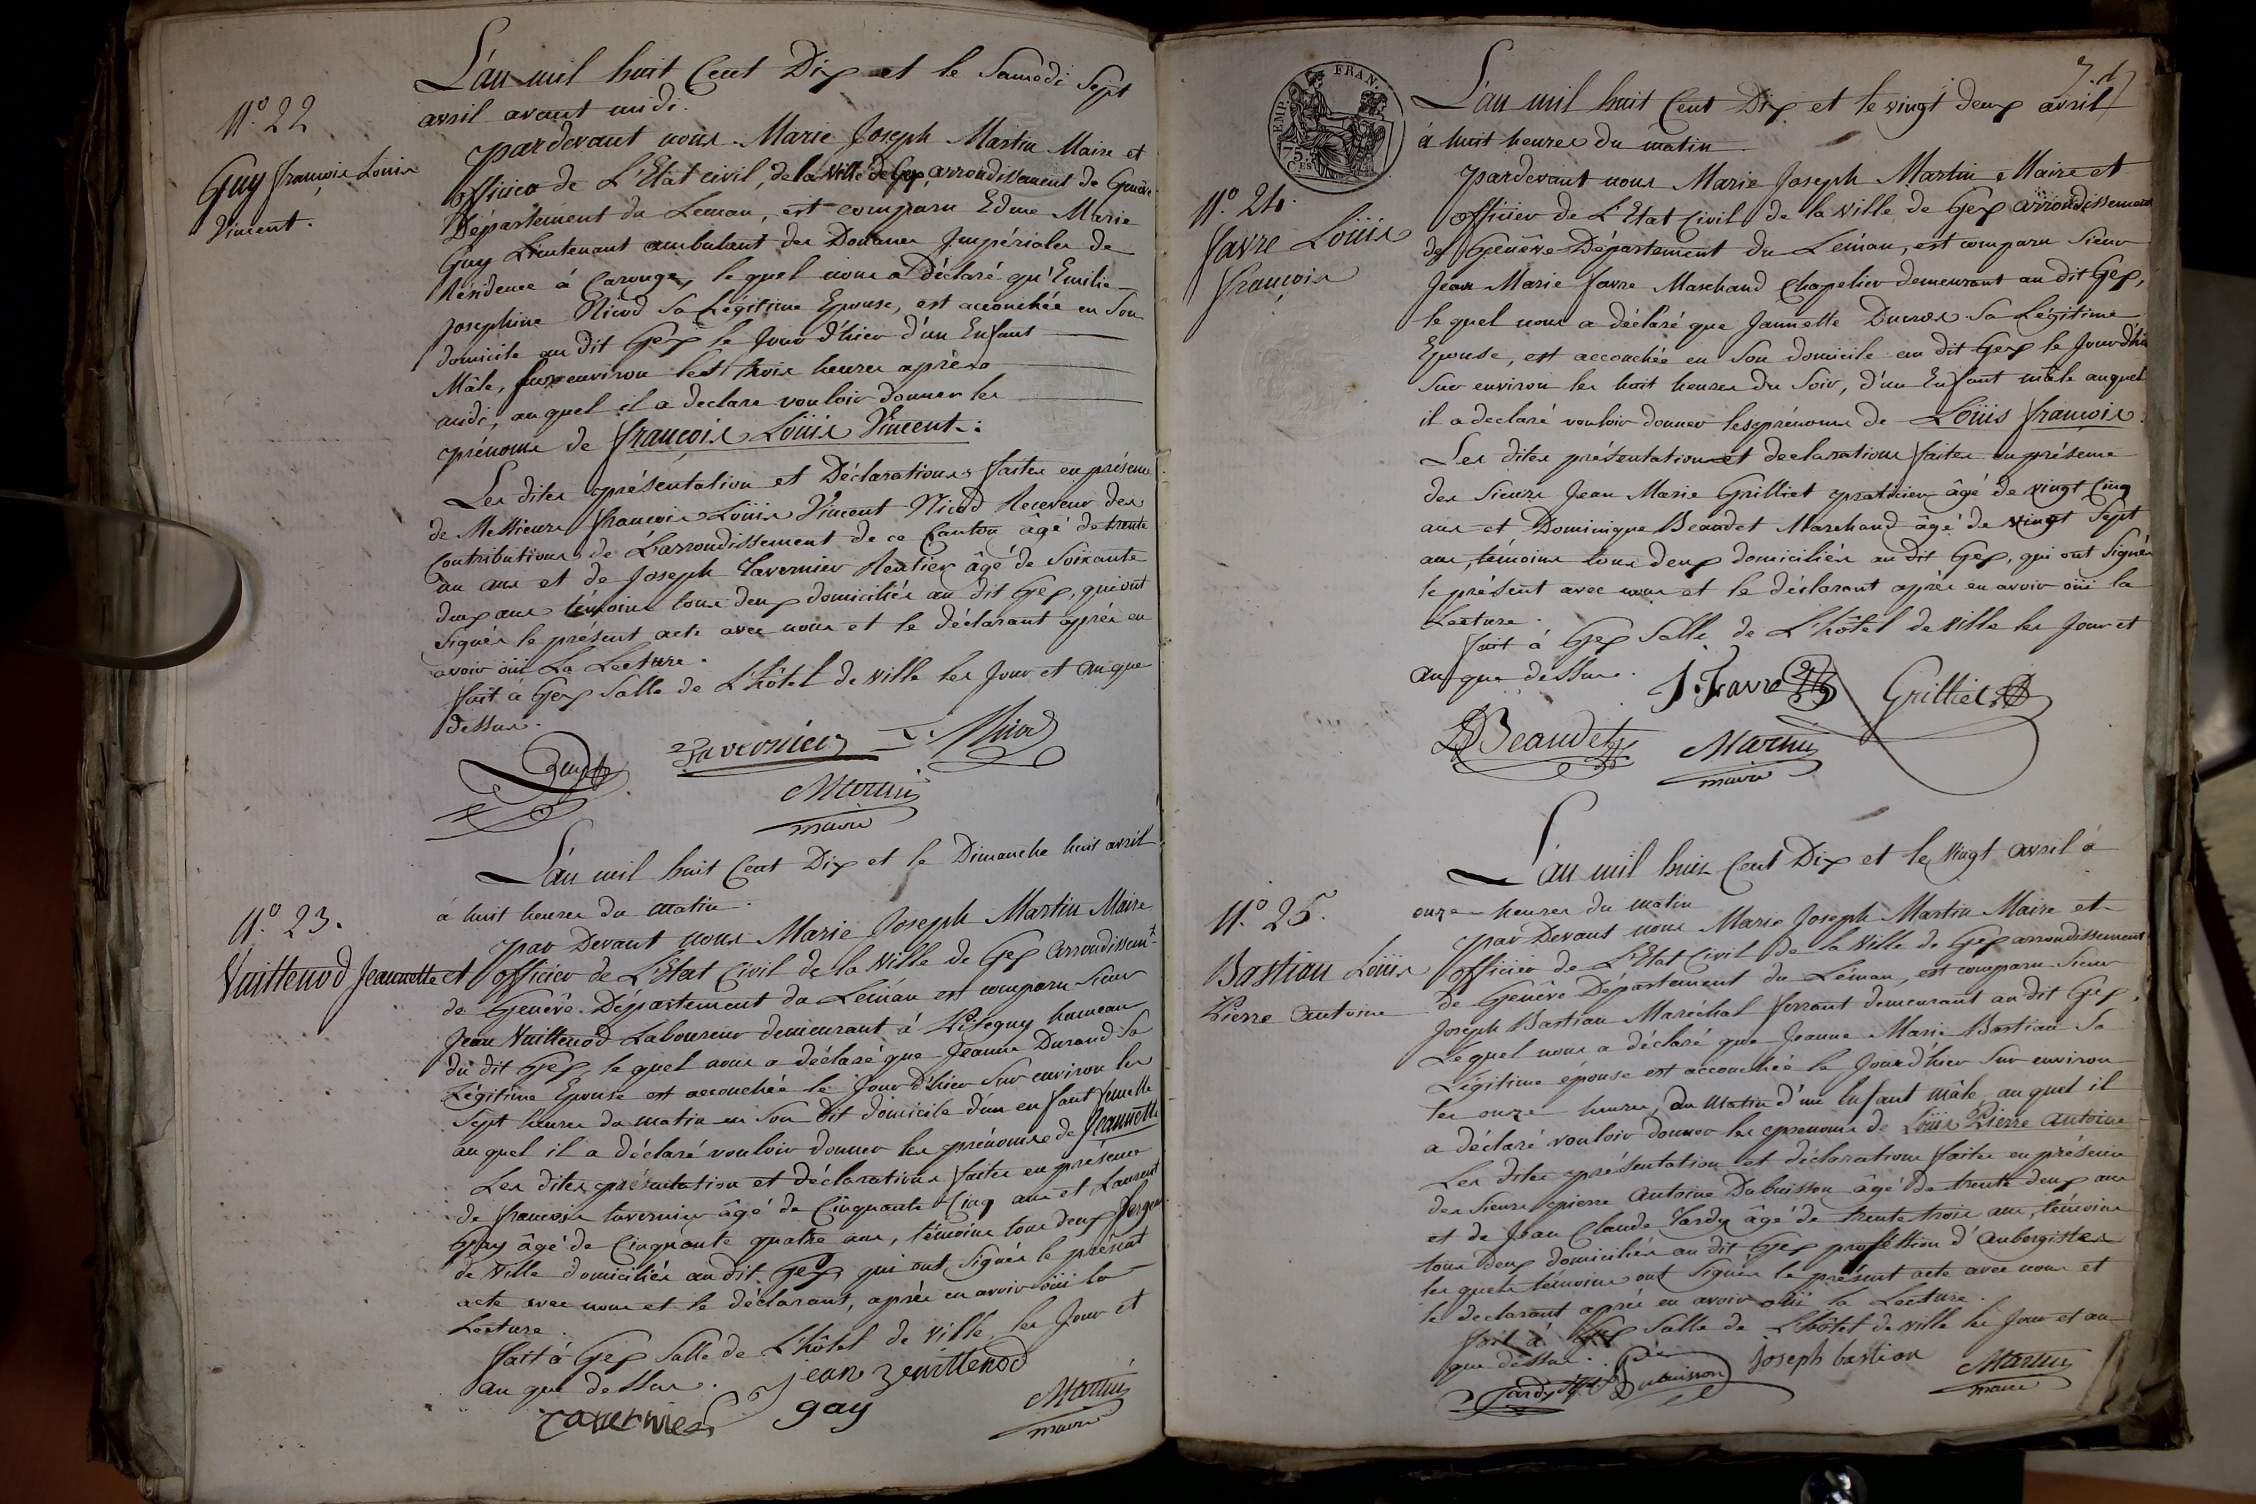 L'an mil huit Cent Dix et le Samedi Sept
avril avant midi.
N.º 22
Guy françois Louis
Vincent.
pardevant nous Marie Joseph Martin Maire et
officier de L'Etat civil, de la ville de Gex, arrondissement de Genêve
Département du Leman, est comparu Edme Marie
Guy Lieutenant ambulant des Douanes Impériales de
Résidence à Carouge, lequel nous a Déclaré qu'Emilie
Josephine Nicod Sa Légitime Epouse, est accouchée en Son
domicile au dit Gex le Jour d'hier d'un Enfant
Mâle, Sur environ les trois heures après
midi, auquel il a declaré vouloir donner les
prénoms de françois Loüis Vincent.
Les dites présentation et Déclarations faites en présence
de Messieurs françois Loüis Vincent Nicod Receveur des
Contributions de L'arrondissement de ce Canton âgé de trente
un ans et de Joseph Tavernier Rentier âgé de Soixante
deux ans témoins tous deux domiciliés au dit Gex, qui ont
Signés le présent acte avec nous et le déclarant après en
avoir oüi La Lecture.
fait à Gex Salle de L'hôtel de ville les Jour et an que
dessus.
Guy
Tavernier
Nicod
Martin
maire
L'an mil huit Cent Dix et le Dimanche huit avril
à huit heures du matin.
N.º 23.
Vuittenod Jeannette
par Devant nous Marie Joseph Martin Maire
et officier de L'Etat Civil de la ville de Gex arrondissem.t
de Genêve Département du Leman est comparu Sieur
Jean Vuittenod Laboureur demeurant à Pitegny hameau
du dit Gex, lequel nous a déclaré que Jeanne Durand Sa
Légitime Epouse est accouchée le Jour d'hier Sur environ les
Sept heures du matin en Son dit domicile d'un enfant femelle
auquel il a déclaré vouloir donner les prénoms de Jeannette
Les dites présentation et déclarations faites en présence
de françois tavernier âgé de Cinquante Cinq ans et Laurent
Gay âgé de Cinquante quatre ans, témoins tous deux Sergens
de ville domiciliés au dit Gex, qui ont Signés le présent
acte avec nous et le déclarant, après en avoir oüi la
Lecture.
fait à Gex Salle de L'hôtel de ville les Jour et
an que dessus.
jean vuittenod
tavernier
gay
Martin
maire
7.
EMP. FRAN.
75 C.es
L'an mil huit Cent Dix et le vingt deux avril
à huit heures du matin
N.º 24.
favre Loüis
françois
pardevant nous Marie Joseph Martin Maire et
officier de L'Etat Civil de la ville de Gex arrondissement
de Genêve Département du Léman, est comparu Sieur
Jean Marie favre Marchand Chapelier demeurant au dit Gex,
lequel nous a déclaré que Jannette Ducros Sa Légitime
Epouse, est accouchée en Son domicile au dit Gex le Jour d'hier
Sur environ les huit heures du Soir, d'un Enfant mâle auquel
il a declaré vouloir donner les prénoms de Loüis françois.
Les dites présentation et declarations faites en présence
des Sieurs Jean Marie Grilliet praticien âgé de vingt Cinq
ans et Dominique Beaudet Marchand âgé de vingt Sept
ans, témoins tous deux domiciliés au dit Gex, qui ont Signés
le présent avec nous et le déclarant après en avoir oüi la
Lecture.
fait à Gex Salle de L'hôtel de Ville les Jour et
an que dessus.
J. Favre
Grilliet
D Beaudet
Martin
maire
L'an mil huit Cent Dix et le Vingt avril à
onze heures du matin
N.º 25.
Bastian Loüis
Pierre Antoine
par Devant nous Marie Joseph Martin Maire et
officier de L'Etat Civil de la Ville de Gex arrondissement
de Genêve Département du Léman, est comparu Sieur
Joseph Bastian Maréchal ferrant demeurant au dit Gex,
Lequel nous a déclaré que Jeanne Marie Bastian Sa
Légitime épouse est accouchée le Jour d'hier Sur environ
les onze heures, du Matin d'un Enfant mâle, auquel il
a déclaré vouloir donner les prenoms de Loüis Pierre Antoine
Les dites présentation et déclarations faites en présence
des Sieurs pierre Antoine Dubuisson âgé de trente deux ans
et de Jean Claude Tardy âgé de trente trois ans, témoins
tous deux domiciliés au dit Gex profession d'Aubergistes
les quels témoins ont Signés le présent acte avec nous et
le déclarant après en avoir oüi la Lecture.
fait à Gex Salle de L'hôtel de ville les Jour et an
que dessus.
Tardy
Dubuisson
Joseph bastian
Martin
maire